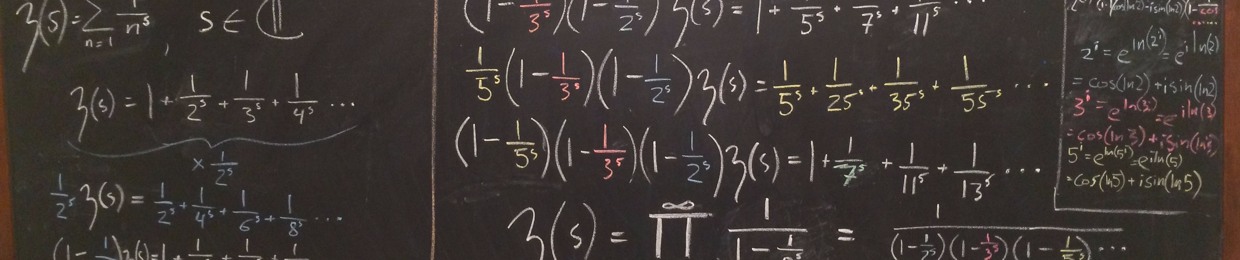 ʒ(s) = ∑ n=1 1/n^s , s ∈ ℂ
ʒ(s) = 1 + 1/2^s + 1/3^s + 1/4^s ...
× 1/2^s
1/2^s ʒ(s) = 1/2^s + 1/4^s + 1/6^s + 1/8^s ...
(1 - 1/3^s)(1 - 1/2^s) ʒ(s) = 1 + 1/5^s + 1/7^s + 1/11^s ...
1/5^s (1 - 1/3^s)(1 - 1/2^s) ʒ(s) = 1/5^s + 1/25^s + 1/35^s + 1/55^s ...
(1 - 1/5^s)(1 - 1/3^s)(1 - 1/2^s) ʒ(s) = 1 + 1/7^s + 1/11^s + 1/13^s ...
ʒ(s) = ∏ ∞ 1/(1 - 1/n^s) = 1/((1 - 1/2^s)(1 - 1/3^s)(1 - 1/5^s) ...
2^i = e^ln(2^i) = e^i ln(2)
= cos(ln2) + i sin(ln2)
3^i = e^ln(3^i) = e^i ln(3)
= cos(ln 3) + i sin(ln3)
5^i = e^ln(5^i) = e^i ln(5)
= cos(ln5) + i sin(ln5)